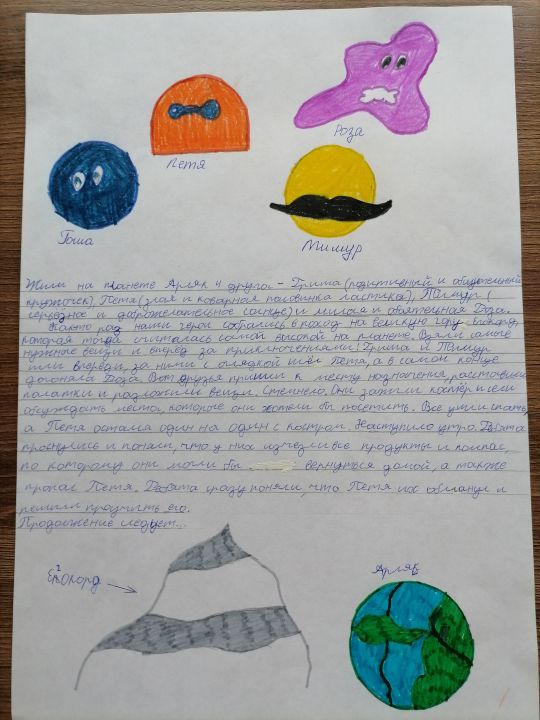 Роза
Петя
Гоша
Мимур
Жили на планете Арляк 4 друга - Гриша (позитивный и общительный
кружочек), Петя (злая и коварная половинка ластика), Мимур (
серьёзное и доброжелательное солнце) и милая и обаятельная Роза.
Как-то раз наши герои собрались в поход на великую гору
которая тогда считалась самой высокой на планете. Взяли самые
нужные вещи и вперёд за приключениями. Гриша и Мимур
шли впереди, за ними с оглядкой шёл Петя, а в самом конце
догоняла Роза. Вот друзья пришли к месту назначения, расставили
палатки и разложили вещи. Стемнело. Они зажгли костёр и сели
обсуждать места, которые они хотели бы посетить. Все ушли спать,
а Петя остался один на один с костром. Наступило утро. Ребята
проснулись и поняли, что у них исчезли все продукты и компас,
по которому они могли бы вернуться домой, а также
пропал Петя. Ребята сразу поняли, что Петя их обманул и
решили проучить его.
Продолжение следует...
Арляк